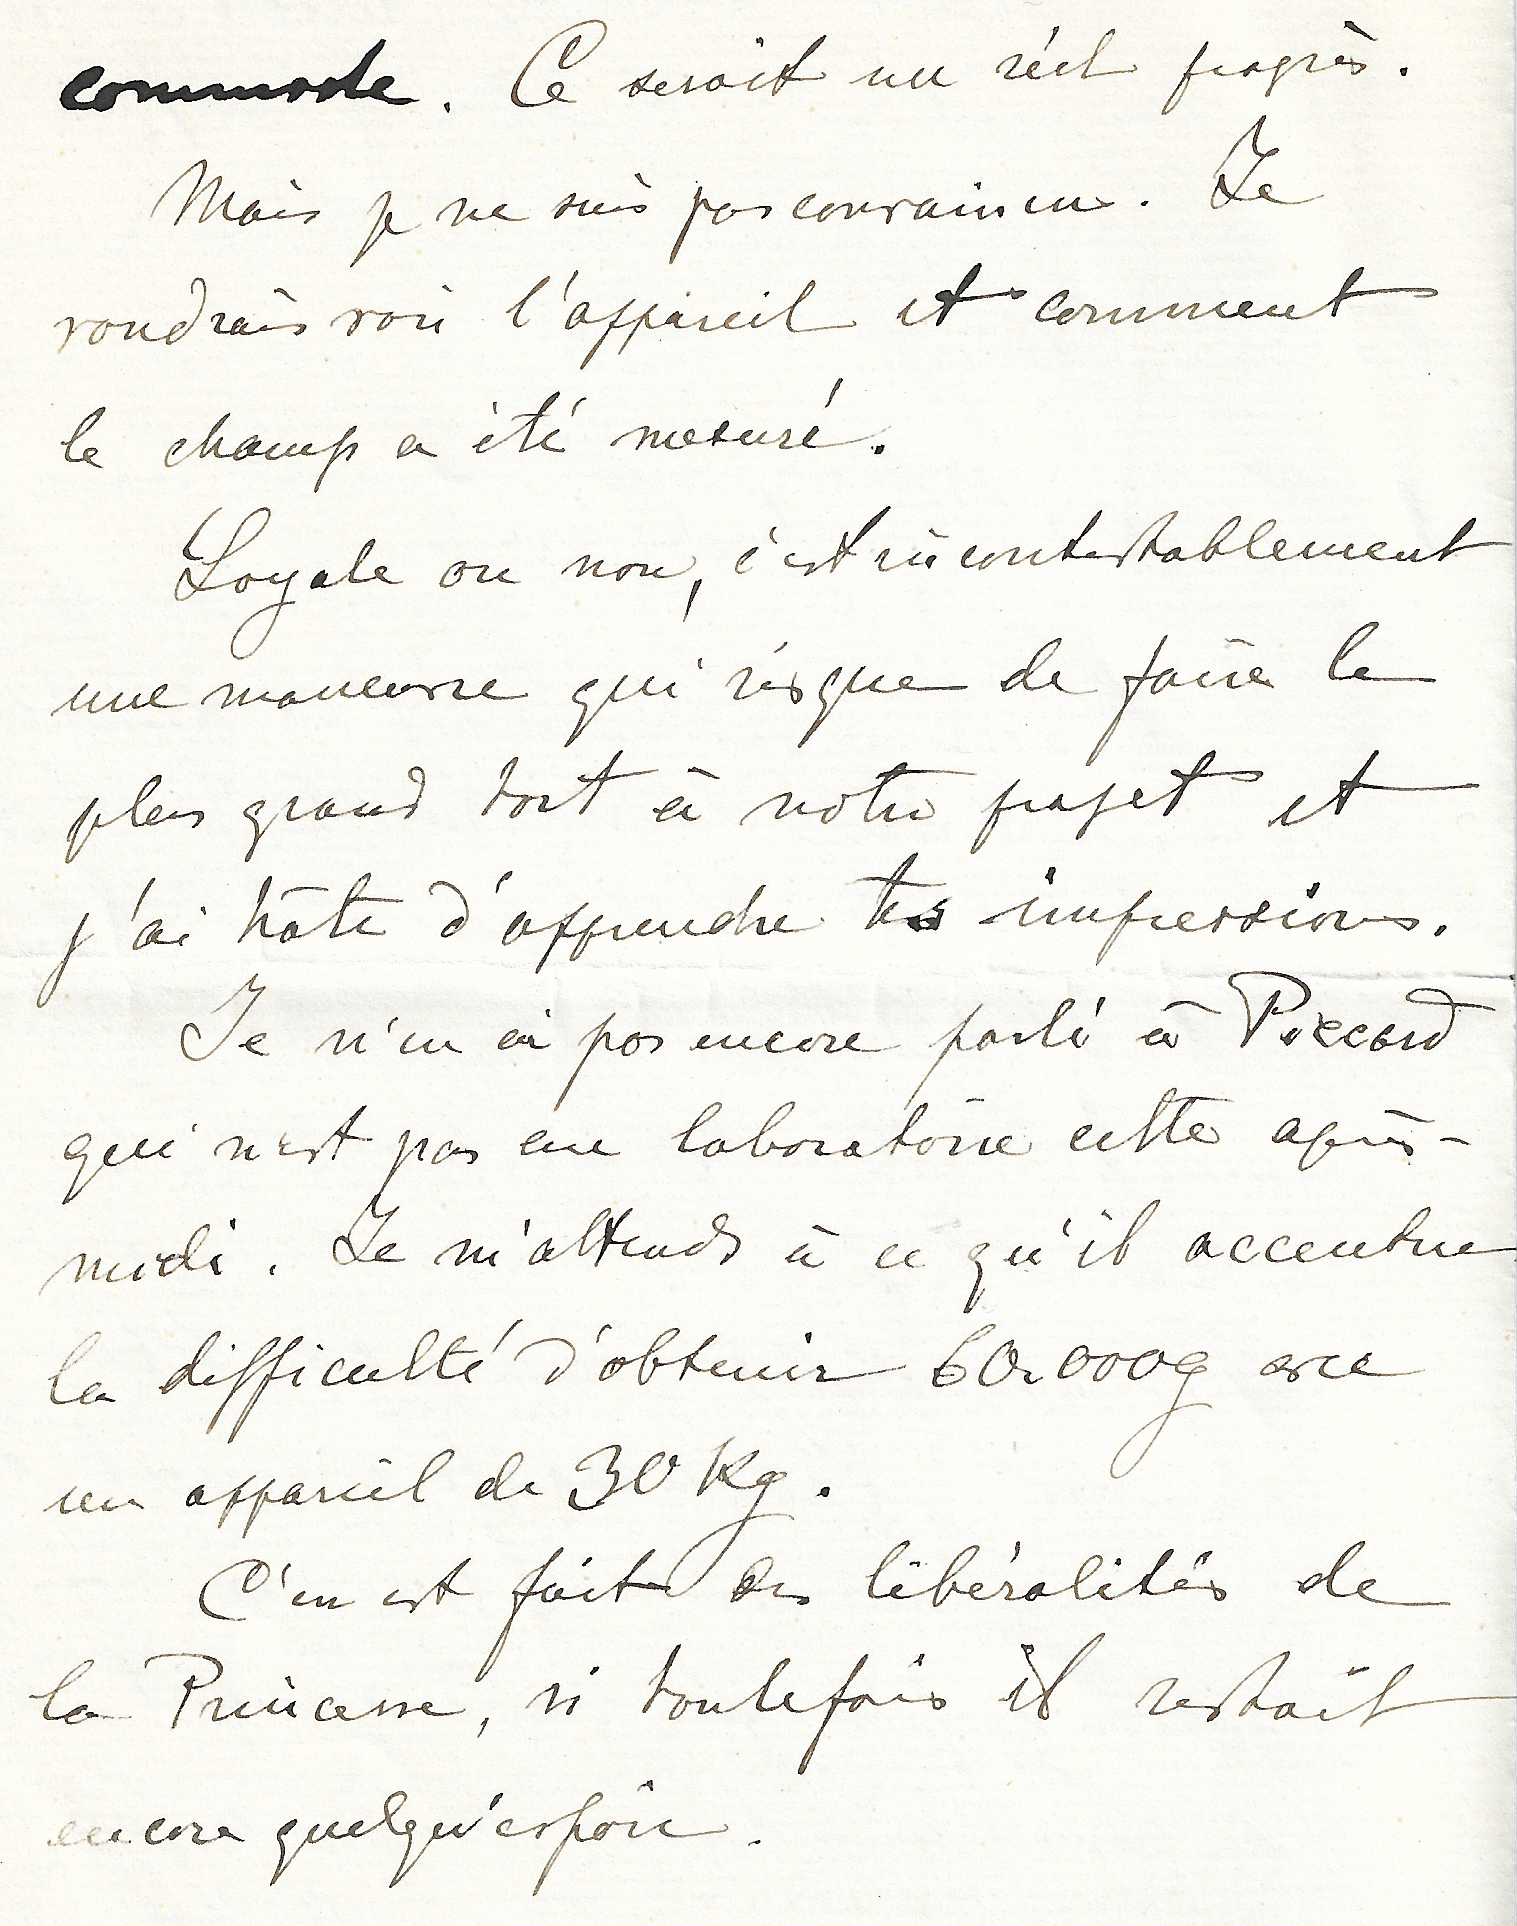 commode. Ce serait un réel progrès.
Mais je ne suis pas convaincu. Je
voudrais voir l'appareil et comment
le champ a été mesuré.
Loyale ou non, c'est incontestablement
une manœuvre qui risque de faire le
plus grand tort à notre projet et
j'ai hâte d'apprendre tes impressions.
Je n'en ai pas encore parlé à Piccard
qui n'est pas au laboratoire cette après-
midi. Je m'attends à ce qu'il accentue
la difficulté d'obtenir 60.000g avec
un appareil de 30 Kg.
C'en est fait des libéralités de
la Princesse, si toutefois il restait
encore quelqu'espoir.